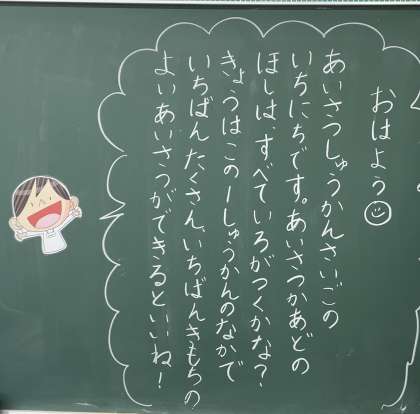 おはよう
あいさつしゅうかんさいごの
いちにちです。あいさつかあどの
ほしは、すべていろがつくかな?
きょうはこの一しゅうかんのなかで
いちばんたくさん、いちばんきもちの
よいあいさつができるといいね!